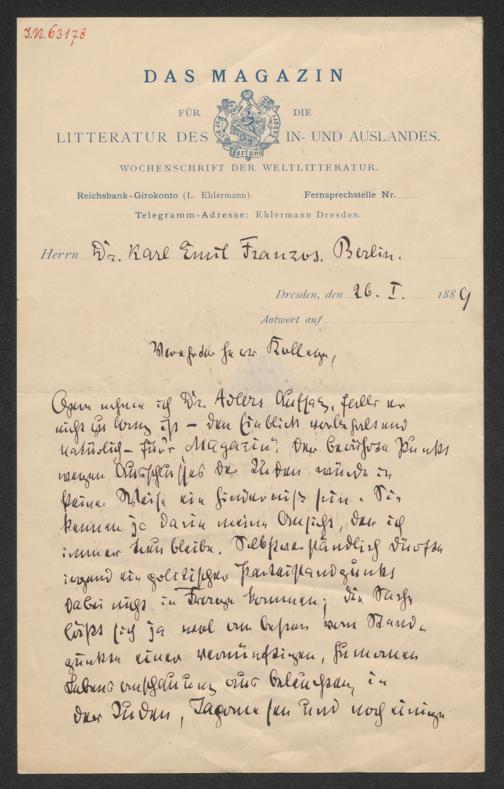 I.N. 63178
DAS MAGAZIN
FÜR DIE
LITTERATUR DES IN- UND AUSLANDES.
WOCHENSCHRIFT DER WELTLITTERATUR.
Reichsbank-Girokonto (L. Ehlermann). Fernsprechstelle Nr.
Telegramm-Adresse: Ehlermann Dresden.
Herrn Dr. Karl Emil Franzos. Berlin.
Dresden, den 26. I. 1889
Antwort auf
Verehrter Herr Kollege,
Gern nehme ich Dr. Adlers Aufsatz, falls er
nicht zu lang ist – den Einblick vorbehaltend
natürlich – für's „Magazin". Der berührte Punkt
wegen Ausschlusses der Juden würde in
keiner Weise ein Hinderniß sein. Sie
kennen ja darin meine Ansicht, der ich
immer treu bleibe. Selbstverständlich dürfte
irgend ein politischer Parteistandpunkt
dabei nicht in Frage kommen; die Sache
läßt sich ja wol am besten vom Stand-
punkte einer vernünftigen, humanen
Lebensanschauung aus beleuchten, in
der Juden, und noch einige